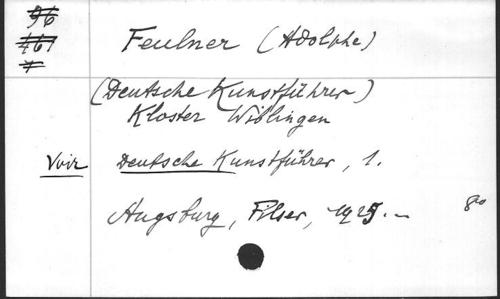 96
461
Feulner (Adolphe)
(Deutsche Kunstführer)
Kloster Wiblingen
Voir Deutsche Kunstführer, 1.
Augsburg, Filser, 1925.- 8º